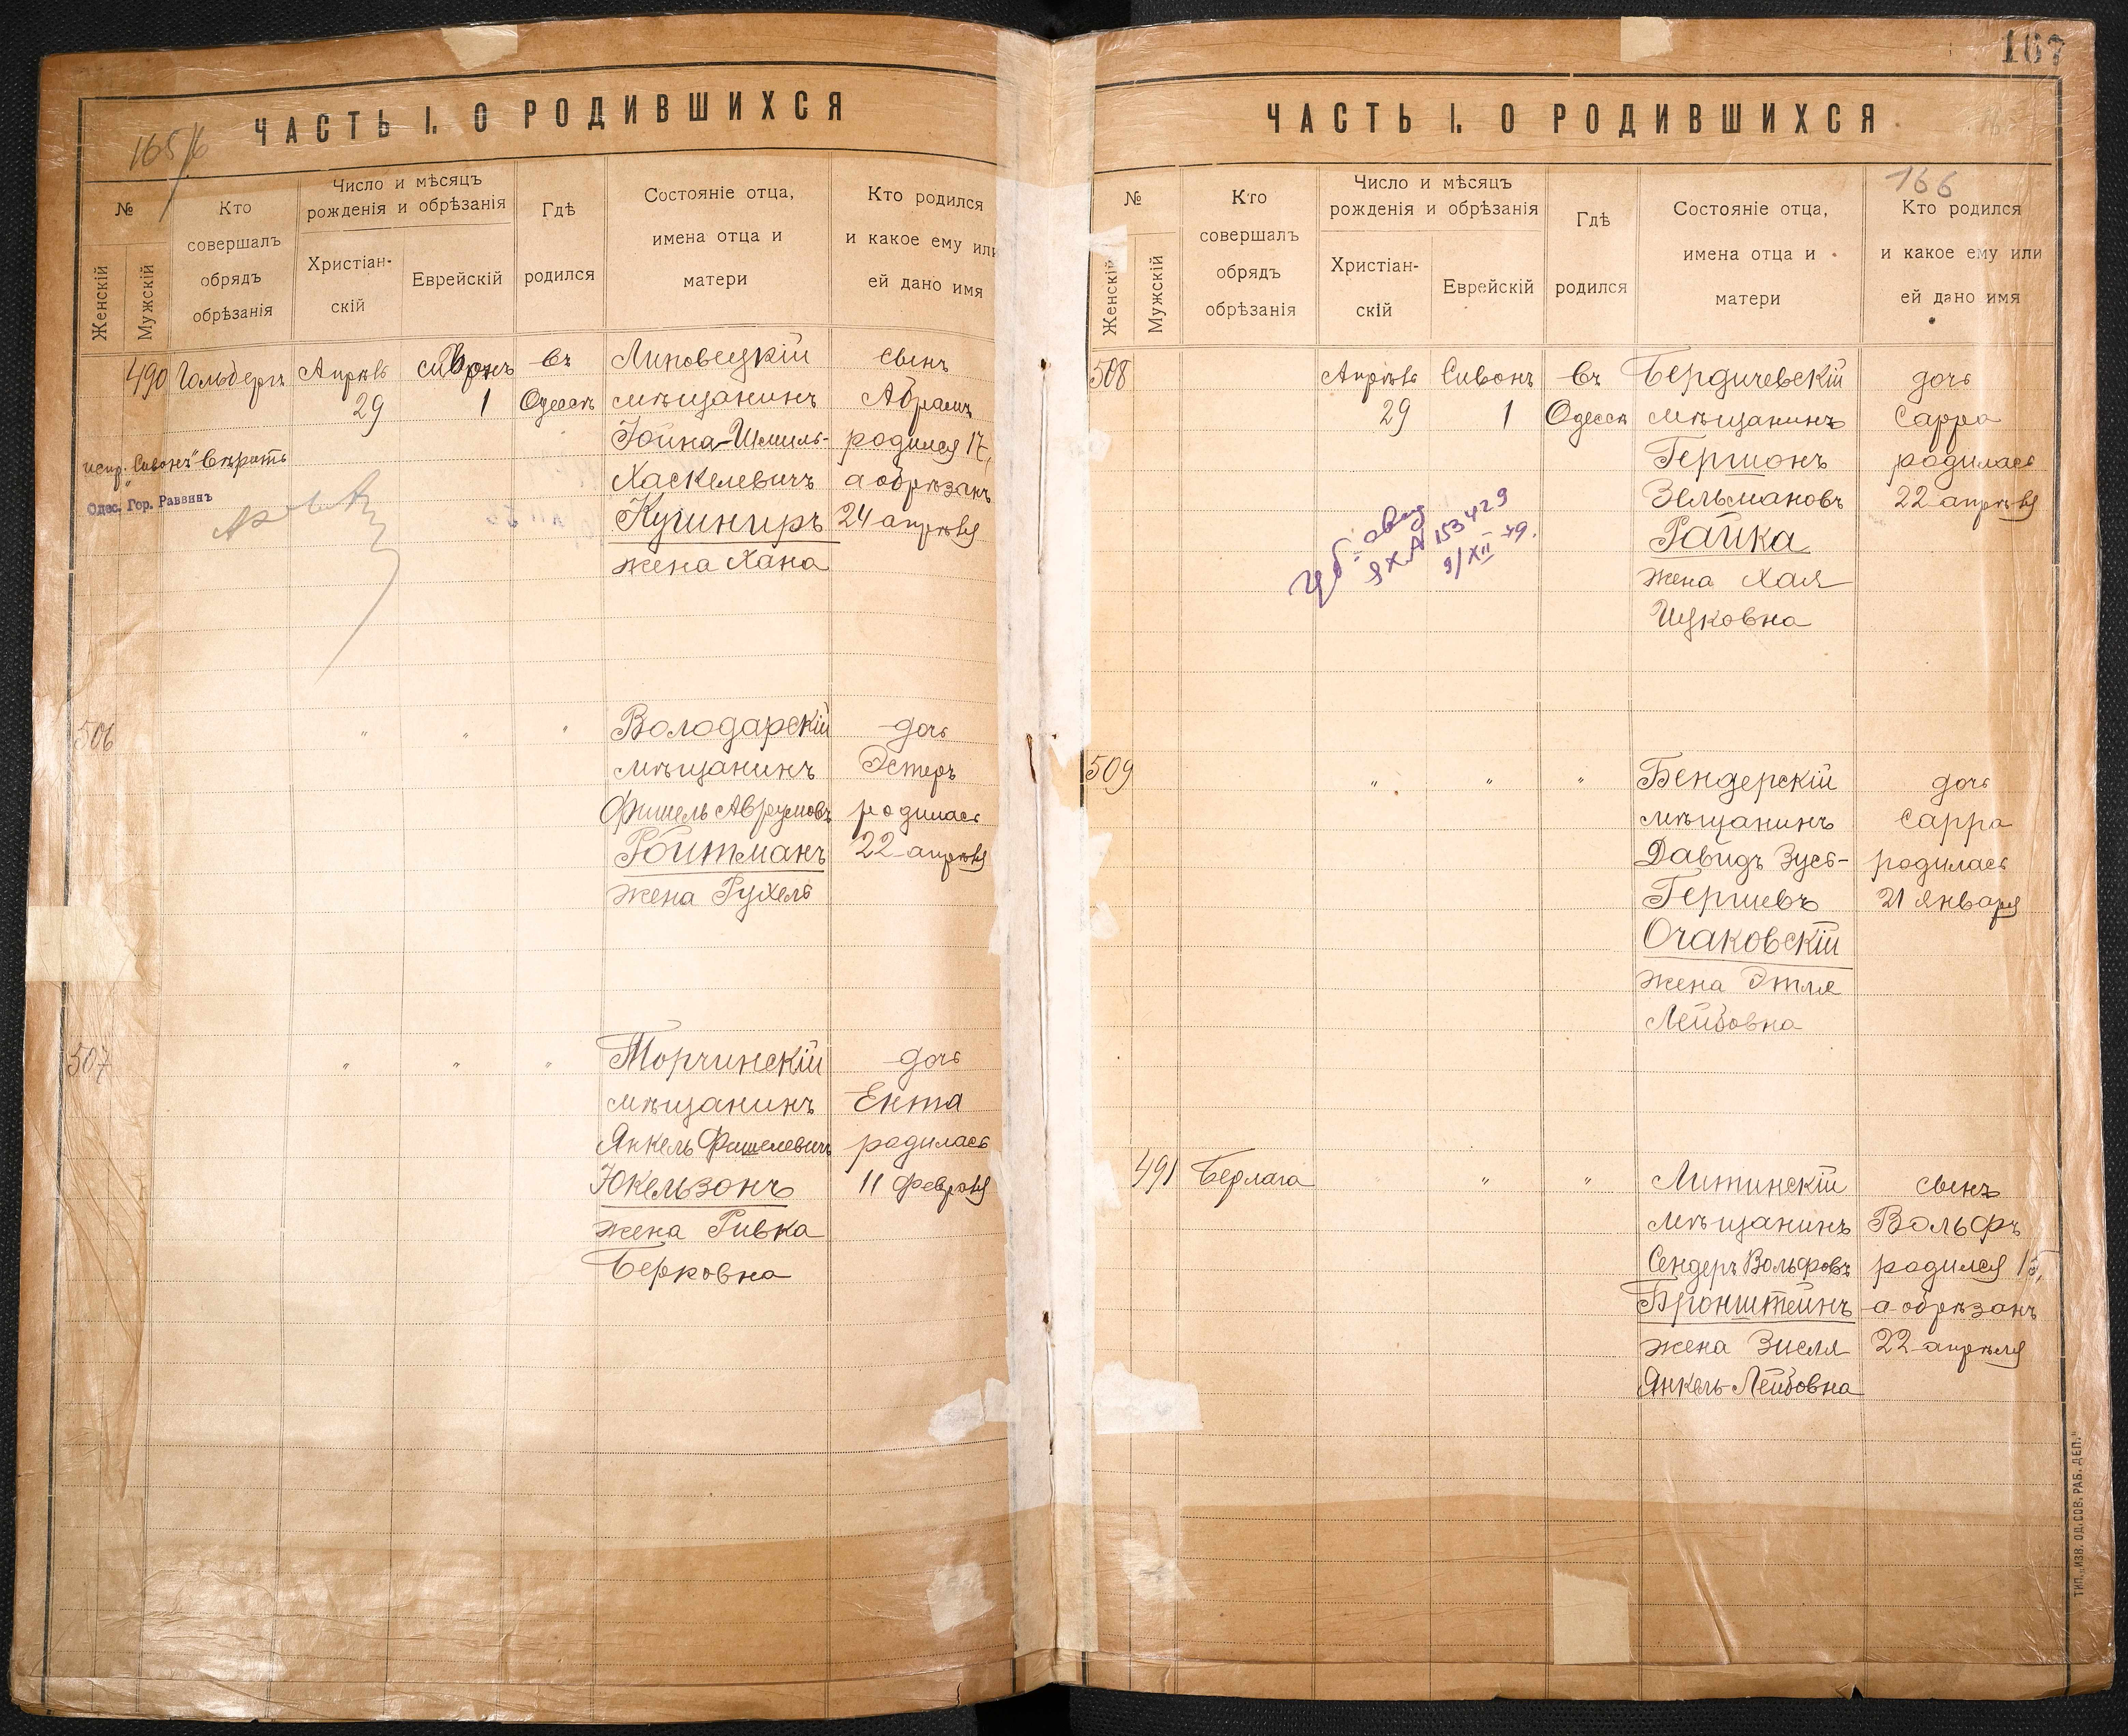 ЧАСТЬ I. О РОДИВШИХСЯ
165/6
№
Женскій
Мужскій
Кто
совершалъ
обрядъ
обрѣзанія
Число и мѣсяцъ
рожденія и обрѣзанія
Христіан-
скій
Еврейскій
Гдѣ
родился
Состояніе отца,
имена отца и
матери
Кто родился
и какое ему или
ей дано имя
490
Гольдергъ
Апрѣль
29
Сивонъ
1
въ
Одессѣ
Липовецкій
мѣщанинъ
Іойна-Шмиль-
Хаскелевичъ
Кушниръ
жена Хана
сынъ
Абрамъ
родился 17,
а обрѣзанъ
24 апрѣля
испр. "Сивонъ" вѣрить
Одес. Гор. Раввинъ
506
"
"
"
Володарскій
мѣщанинъ
Фишель Аврумовъ
Ройтманъ
жена Рухель
дочь
Эстеръ
родилась
22 апрѣля
507
"
"
"
Торчинскій
мѣщанинъ
Янкель Фишелевичъ
Юкельзонъ
жена Ривка
Берковна
дочь
Ента
родилась
11 февраля
167
ЧАСТЬ I. О РОДИВШИХСЯ
166
№
Женскій
Мужскій
Кто
совершалъ
обрядъ
обрѣзанія
Число и мѣсяцъ
рожденія и обрѣзанія
Христіан-
скій
Еврейскій
Гдѣ
родился
Состояніе отца,
имена отца и
матери
Кто родился
и какое ему или
ей дано имя
508
Апрѣль
29
Сивонъ
1
въ
Одессѣ
Бердичевскій
мѣщанинъ
Гершонъ
Зельмановъ
Райка
жена Хая
Ицковна
дочь
Сарра
родилась
22 апрѣля
ЯХА 153429
9/XII 79.
509
"
"
"
Бендерскій
мѣщанинъ
Давидъ Зусь-
Гершевъ
Очаковскій
жена Этля
Лейбовна
дочь
Сарра
родилась
21 января
491
Берлага
"
"
"
Литинскій
мѣщанинъ
Сендеръ Вольфовъ
Бронштейнъ
жена Зисля
Янкель-Лейбовна
сынъ
Вольфъ
родился 15,
а обрѣзанъ
22 апрѣля
ТИП. „ИЗВ. ОД. СОВ. РАБ. ДЕП."